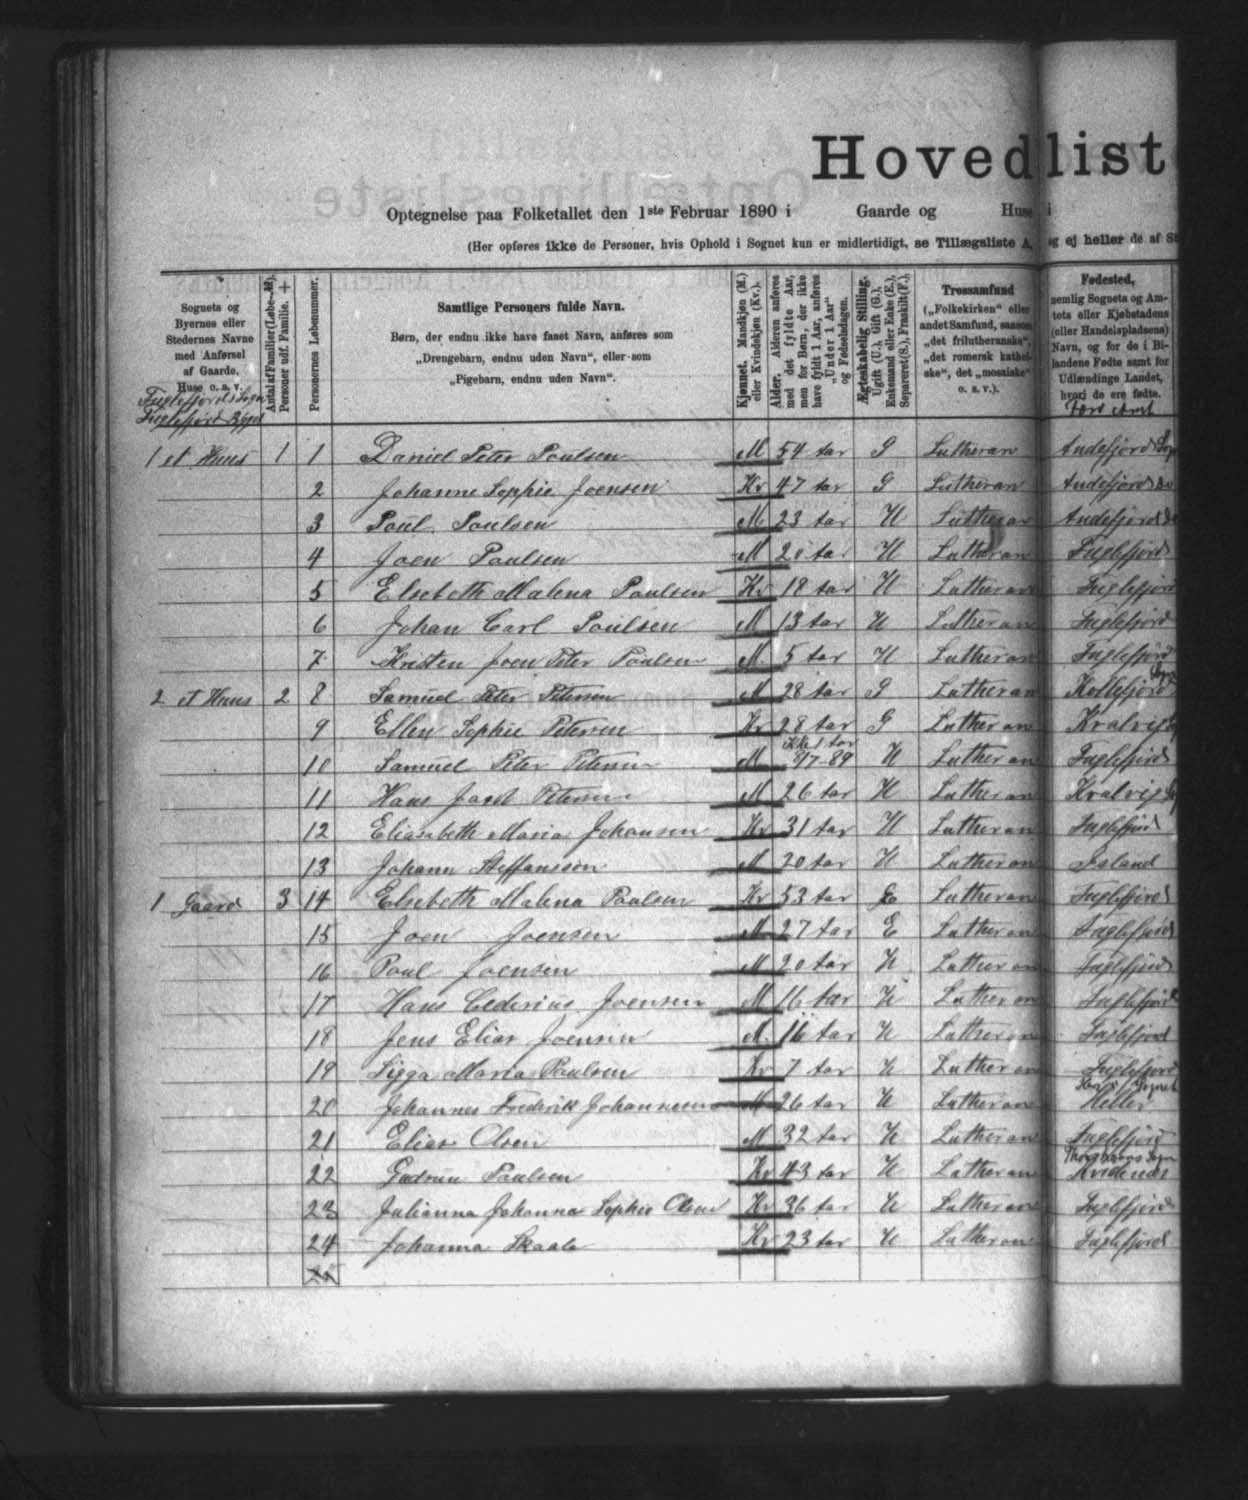 Hovedliste
Optegnelse paa Folketallet den 1ste Februar 1890 i Gaarde og Huse i
(Her opføres ikke de Personer, hvis Ophold i Sognet kun er midlertidigt, se Tillægsliste A, og ej heller de af
Sognets og Byernes eller Stedernes Navne med Anførsel af Gaarde, Huse o. s. v.
Antal af Familier (Løbe-№). Personer udf. Familie. +
Personernes Løbenummer.
Samtlige Personers fulde Navn.
Børn, der endnu ikke have faaet Navn, anføres som
„Drengebarn, endnu uden Navn“, eller som
„Pigebarn, endnu uden Navn“.
Kjønnet. Mandkjøn (M.) eller Kvindekjøn (Kv.).
Alder. Alderen anføres med det fyldte Aar, men for Børn, der ikke have fyldt 1 Aar, anføres „Under 1 Aar“ og Fødselsdagen.
Ægteskabelig Stilling. Ugift (U.), Gift (G.), Enkemand eller Enke (E.), Separeret (S.), Fraskilt (F.).
Trossamfund
(„Folkekirken“ eller andet Samfund, saasom „det frilutheranske“, „det romersk katholske“, det „mosaiske“ o. s. v.).
Fødested,
nemlig Sognets og Amtets eller Kjøbstadens (eller Handelspladsens) Navn, og for de i Bilandene Fødte samt for Udlændinge Landet, hvori de ere fødte.
Fuglefjords Sogn
Fuglefjord Bygd
Færø Amt
1 et Huus 1 1 Daniel Peter Poulsen M 54 aar G Lutheran Andefjord Sogn
2 Johanne Soppie Joensen Kv 47 aar G Lutheran Andefjord do
3 Poul Poulsen M 23 aar U Lutheran Andefjord do
4 Joen Poulsen M 20 aar U Lutheran Fuglefjord
5 Elsebeth Malena Poulsen Kv 18 aar U Lutheran Fuglefjord
6 Johan Carl Poulsen M 13 aar U Lutheran Fuglefjord
7 Kristen Joen Peter Poulsen M 5 aar U Lutheran Fuglefjord
2 et Huus 2 8 Samuel Peter Petersen M 28 aar G Lutheran Kollefjord Sogn
9 Ellen Sophie Petersen Kv 28 aar G Lutheran Kvalvig
10 Samuel Peter Petersen M Ikke 1 aar 3/7-89 U Lutheran Fuglefjord
11 Hans Petersen M 26 aar U Lutheran Kvalvig
12 Eliasabeth Maria Johansen Kv 31 aar U Lutheran Fuglefjord
13 Johann Steffansson M 20 aar U Lutheran Island
1 Gaard 3 14 Elsebeth Malena Poulsen Kv 53 aar E Lutheran Fuglefjord
15 Joen Joensen M 27 aar E Lutheran Fuglefjord
16 Poul Joensen M 20 aar U Lutheran Fuglefjord
17 Hans Cederius Joensen M 16 aar U Lutheran Fuglefjord
18 Jens Elias Joensen M 16 aar U Lutheran Fuglefjord
19 Sigga Maria Poulsen Kv 7 aar U Lutheran Fuglefjord
20 Johannes Frederik Johannesen M 26 aar U Lutheran Sognet Heller
21 Elias Olsen M 32 aar U Lutheran Fuglefjord
22 Gudrun Poulsen Kv 43 aar U Lutheran Thorshavns Sogn Hvidenæs
23 Julianna Johanna Sophie Olsen Kv 36 aar U Lutheran Fuglefjord
24 Johanna Skaale Kv 23 aar U Lutheran Fuglefjord
25